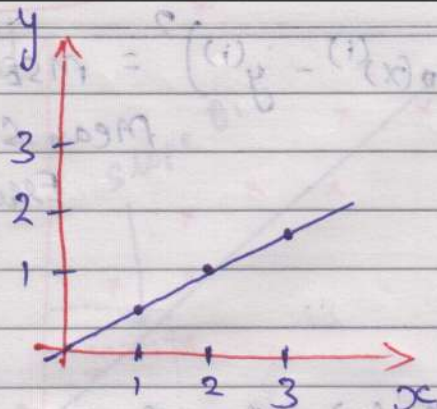 y
3
2
1
1 2 3 x